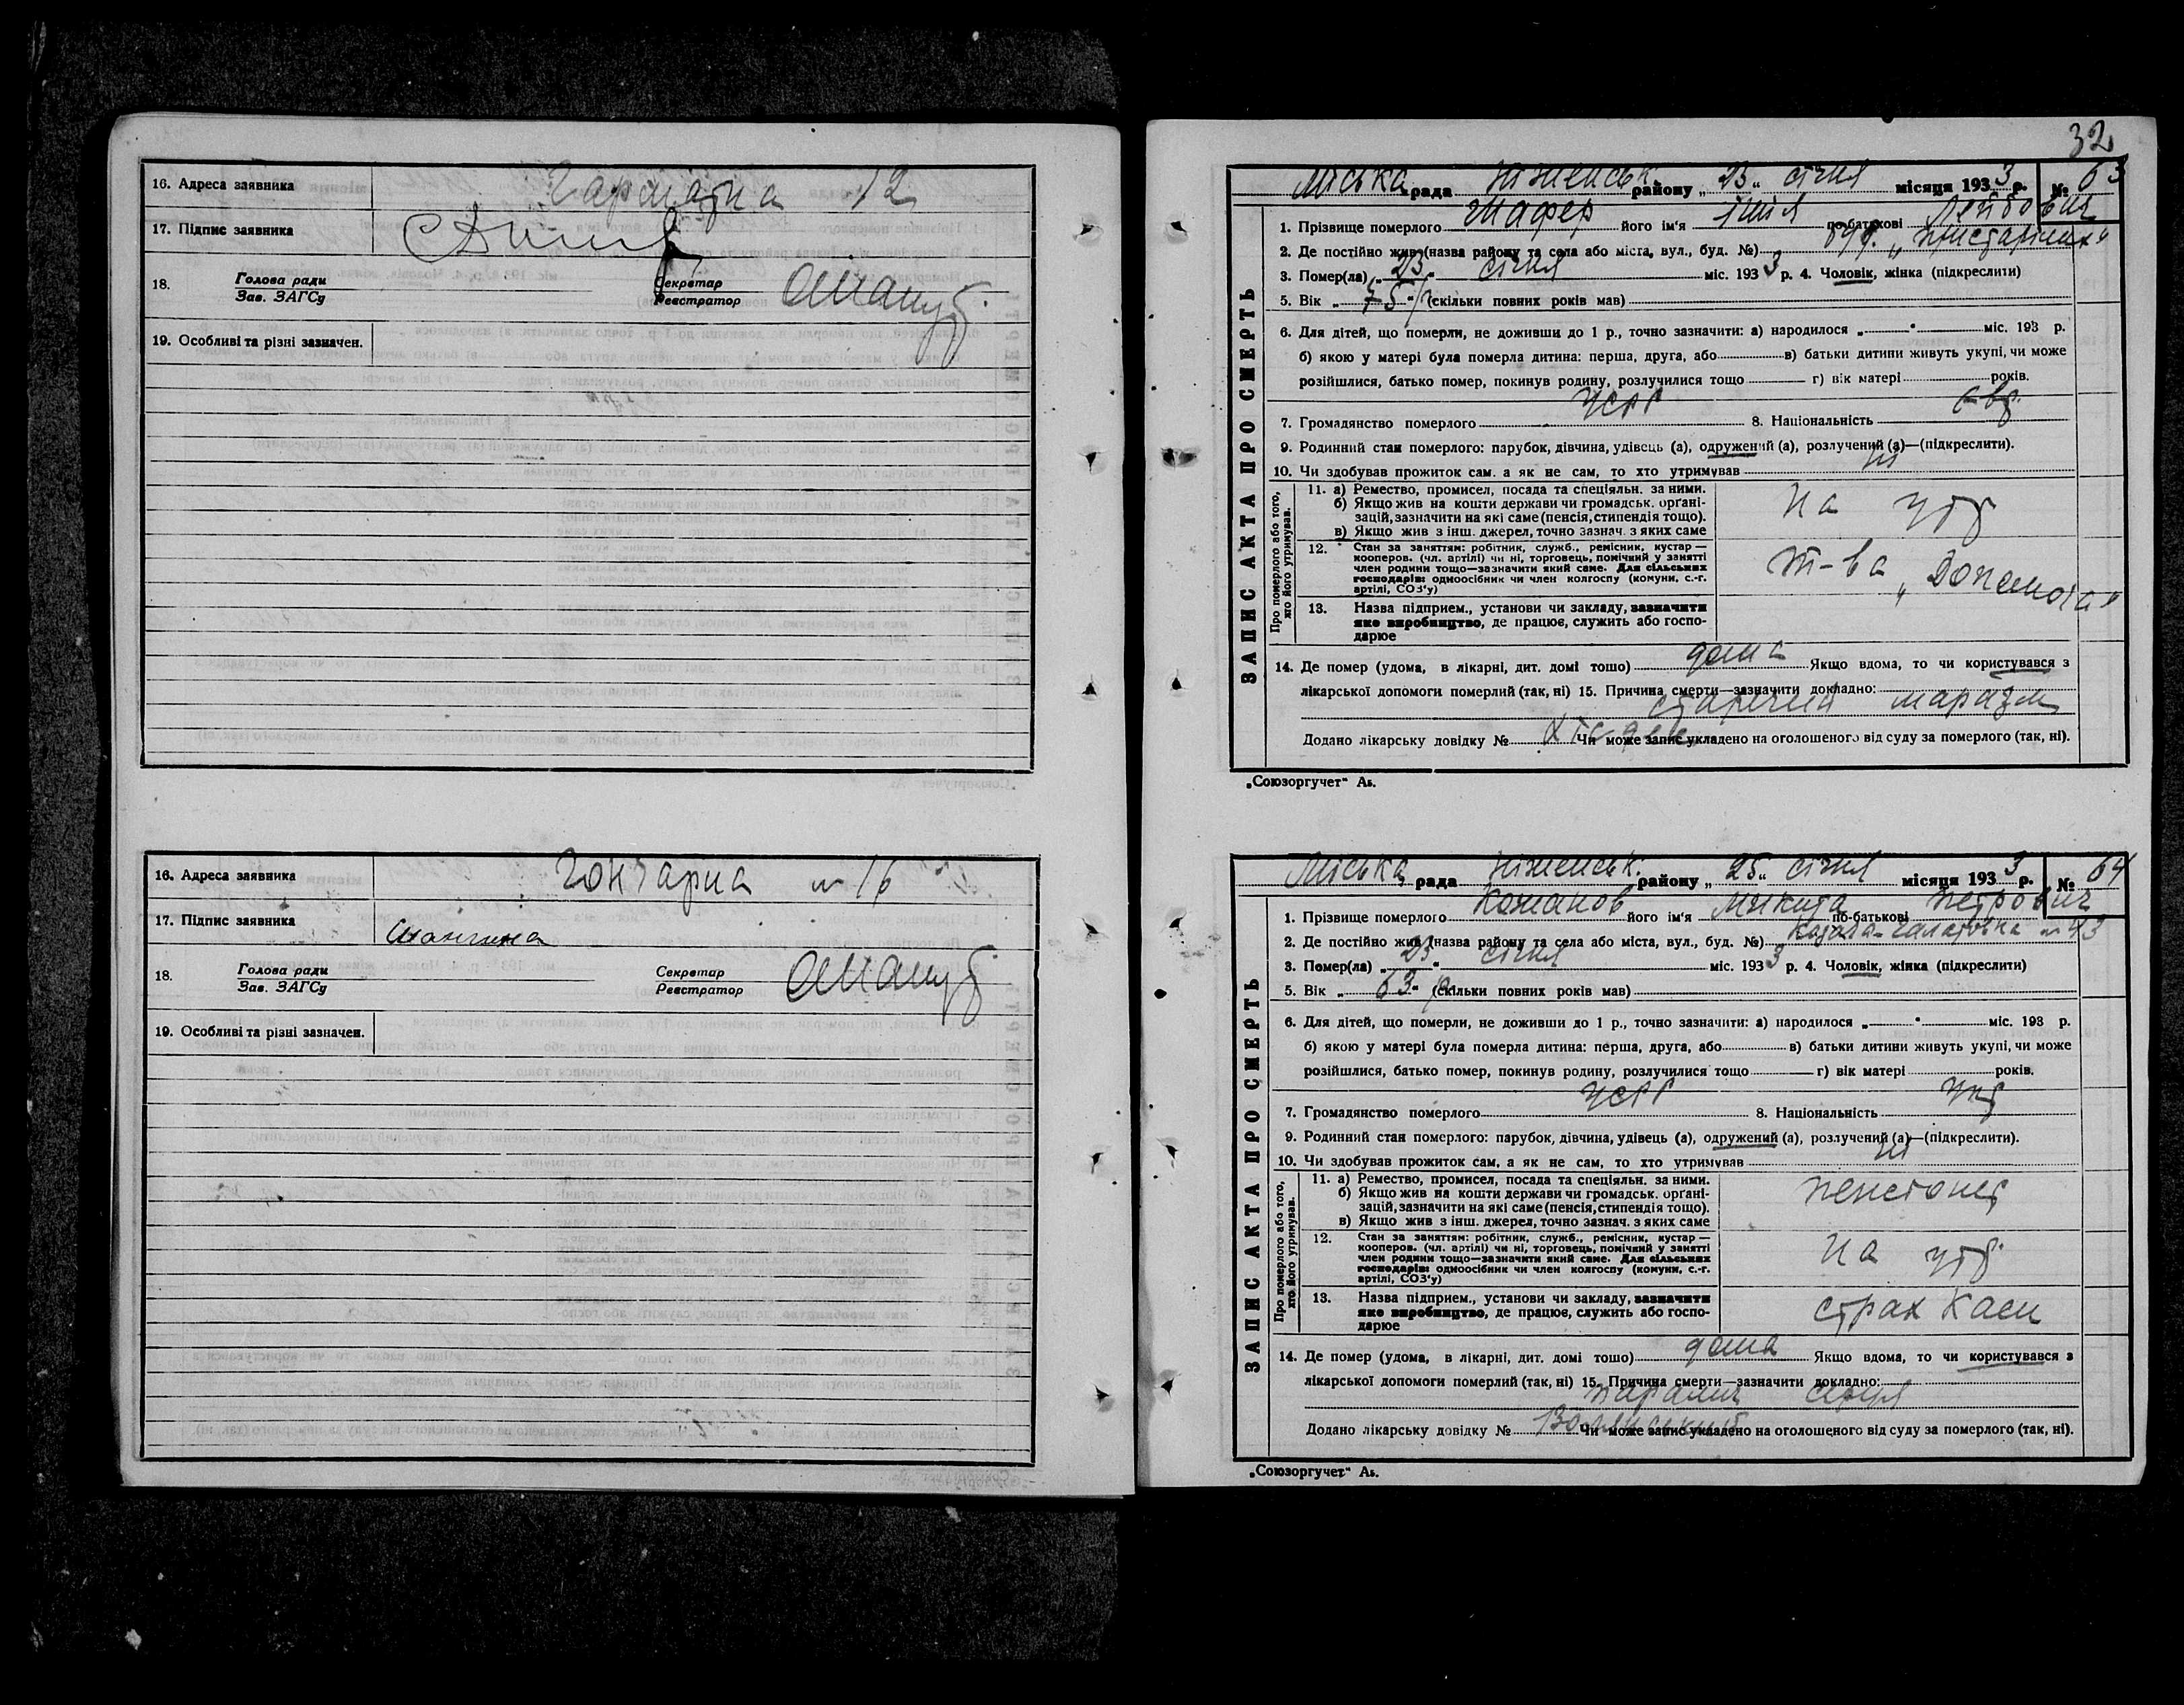 16. Адреса заявника Гарматна 12
17. Підпис заявника
18. Голова ради Секретар
Зав. ЗАГСу Реєстратор
19. Особливі та різні зазначен.
16. Адреса заявника Гончарна № 16
17. Підпис заявника
18. Голова ради Секретар
Зав. ЗАГСу Реєстратор
19. Особливі та різні зазначен.
32
ЗАПИС АКТА ПРО СМЕРТЬ
Міська рада Ніженськ. району „23“ січня місяця 1933 р. № 63
1. Прізвище померлого його ім'я по-батькові Лейбович
2. Де постійно жив (назва району та села або міста, вул., буд. №)
3. Помер(ла) „23“ січня міс. 1933 р. 4. Чоловік, жінка (підкреслити)
5. Вік „75“ р (скільки повних років мав)
6. Для дітей, що померли, не доживши до 1 р., точно зазначити: а) народилося „ “ міс. 193 р.
б) якою у матері була померла дитина: перша, друга, або в) батьки дитини живуть укупі, чи може
розійшлися, батько помер, покинув родину, розлучилися тощо г) вік матері років.
7. Громадянство померлого УСРР 8. Національність євр.
9. Родинний стан померлого: парубок, дівчина, удівець (а), одружений (а), розлучений (а)—(підкреслити).
10. Чи здобував прожиток сам, а як не сам, то хто утримував ні
Про померлого або того, хто його утримував.
11. а) Ремество, промисел, посада та спеціяльн. за ними.
б) Якщо жив на кошти держави чи громадськ. орґані-
зацій, зазначити на які саме (пенсія, стипендія тощо).
в) Якщо жив з інш. джерел, точно зазнач. з яких саме
На утр
12. Стан за заняттям: робітник, служб., ремісник, кустар —
кооперов. (чл. артілі) чи ні, торговець, помічний у занятті
член родини тощо—зазначити який саме. Для сільських
господарів: одноосібник чи член колгоспу (комуни, с.-г.
артілі, СОЗ'у)
т-ва „Допомога“
13. Назва підприєм., установи чи закладу, зазначити
яке виробництво, де працює, служить або госпо-
дарює
14. Де помер (удома, в лікарні, дит. домі тощо) дома Якщо вдома, то чи користувався з
лікарської допомоги померлий (так, ні) 15. Причина смерти—зазначити докладно:
старечий маразм
Додано лікарську довідку № Чи може запис укладено на оголошеного від суду за померлого (так, ні).
„Союзоргучет“ Аь.
ЗАПИС АКТА ПРО СМЕРТЬ
Міська рада Ніженськ. району „25“ січня місяця 1933 р. № 64
1. Прізвище померлого Команов його ім'я Микита по-батькові Петрович
2. Де постійно жив (назва району та села або міста, вул., буд. №) № 43
3. Помер(ла) „23“ січня міс. 1933 р. 4. Чоловік, жінка (підкреслити)
5. Вік „63“ р (скільки повних років мав)
6. Для дітей, що померли, не доживши до 1 р., точно зазначити: а) народилося „ “ міс. 193 р.
б) якою у матері була померла дитина: перша, друга, або в) батьки дитини живуть укупі, чи може
розійшлися, батько помер, покинув родину, розлучилися тощо г) вік матері років.
7. Громадянство померлого УСРР 8. Національність укр
9. Родинний стан померлого: парубок, дівчина, удівець (а), одружений (а), розлучений (а)—(підкреслити).
10. Чи здобував прожиток сам, а як не сам, то хто утримував ні
Про померлого або того, хто його утримував.
11. а) Ремество, промисел, посада та спеціяльн. за ними.
б) Якщо жив на кошти держави чи громадськ. орґані-
зацій, зазначити на які саме (пенсія, стипендія тощо).
в) Якщо жив з інш. джерел, точно зазнач. з яких саме
пенсіонер
12. Стан за заняттям: робітник, служб., ремісник, кустар —
кооперов. (чл. артілі) чи ні, торговець, помічний у занятті
член родини тощо—зазначити який саме. Для сільських
господарів: одноосібник чи член колгоспу (комуни, с.-г.
артілі, СОЗ'у)
На утр.
13. Назва підприєм., установи чи закладу, зазначити
яке виробництво, де працює, служить або госпо-
дарює
страх Каси
14. Де помер (удома, в лікарні, дит. домі тощо) дома Якщо вдома, то чи користувався з
лікарської допомоги померлий (так, ні) 15. Причина смерти—зазначити докладно:
параліч серця
Додано лікарську довідку № Волянський Чи може запис укладено на оголошеного від суду за померлого (так, ні).
„Союзоргучет“ Аь.